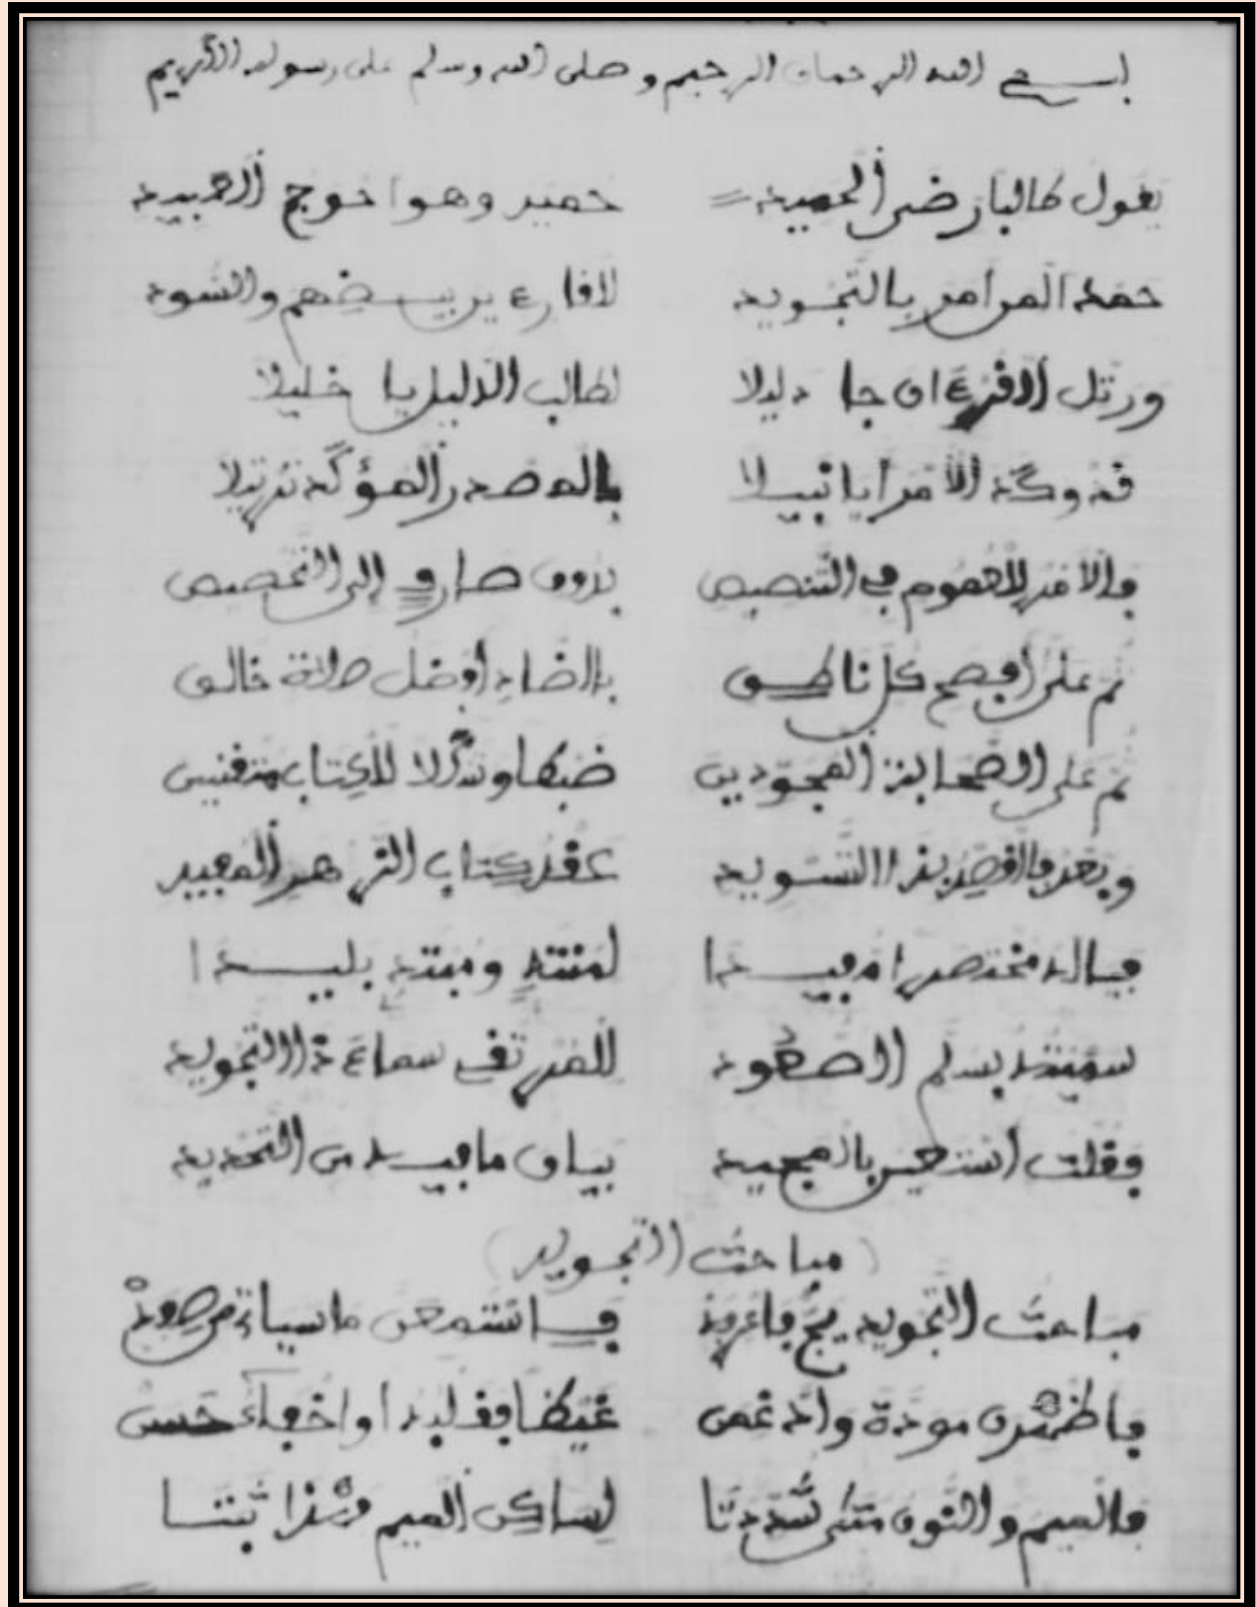 بسم الله الرحمان الرحيم وصلى الله وسلم على رسوله الكريم
يقول طالبا رضى الحميد حمير وهوا حوج العبيد
حمدا لمن امر بالتجويد لا قارئ والسود
ورتل القرءان جا دليلا لطالب الدليل يا خليلا
قد وكد الأمر أيا نبيلا بالمصدر المؤكد ترتيلا
والأمر للعموم في التنصيص بدون صارف إلى التخصيص
ثم على أفصح كل ناطق بالضاد أفضل صلاة خالق
ثم على الصحابة المجودين ضبطا وتدلا للكتاب متقنين
وبعد فالقصد بذا التسويد عقد كتاب المفيد
فياله مختصرا مفيدا لمنته ومبتد بليدا
سميته بسلم الصعود للمرتقي سماء ذا التجويد
وقلت أستعين بالمجيد بيان ما فيه من التحديد
(مباحث التجويد)
مباحث التجويد فاستمعن ما سيأتي من
فأظهرن مودة وادغمن غيظا بقلبه أو اخفاء حسن
فالميم والنون متى شددتا لساكن الميم ثبتا